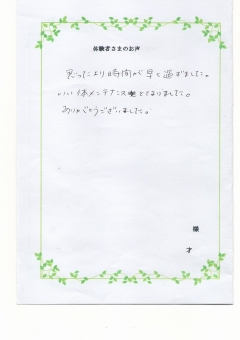 体験者さまのお声
思ったより時間が早く過ぎました。
いい体メンテナンスとなりました。
ありがとうございました。
様
才